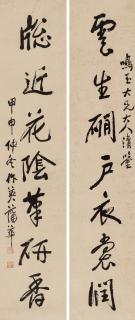 鳴玉大兄大人清鑒
雲生磵戶衣裳潤
牕近花陰筆研香
甲申仲冬作英蒲華